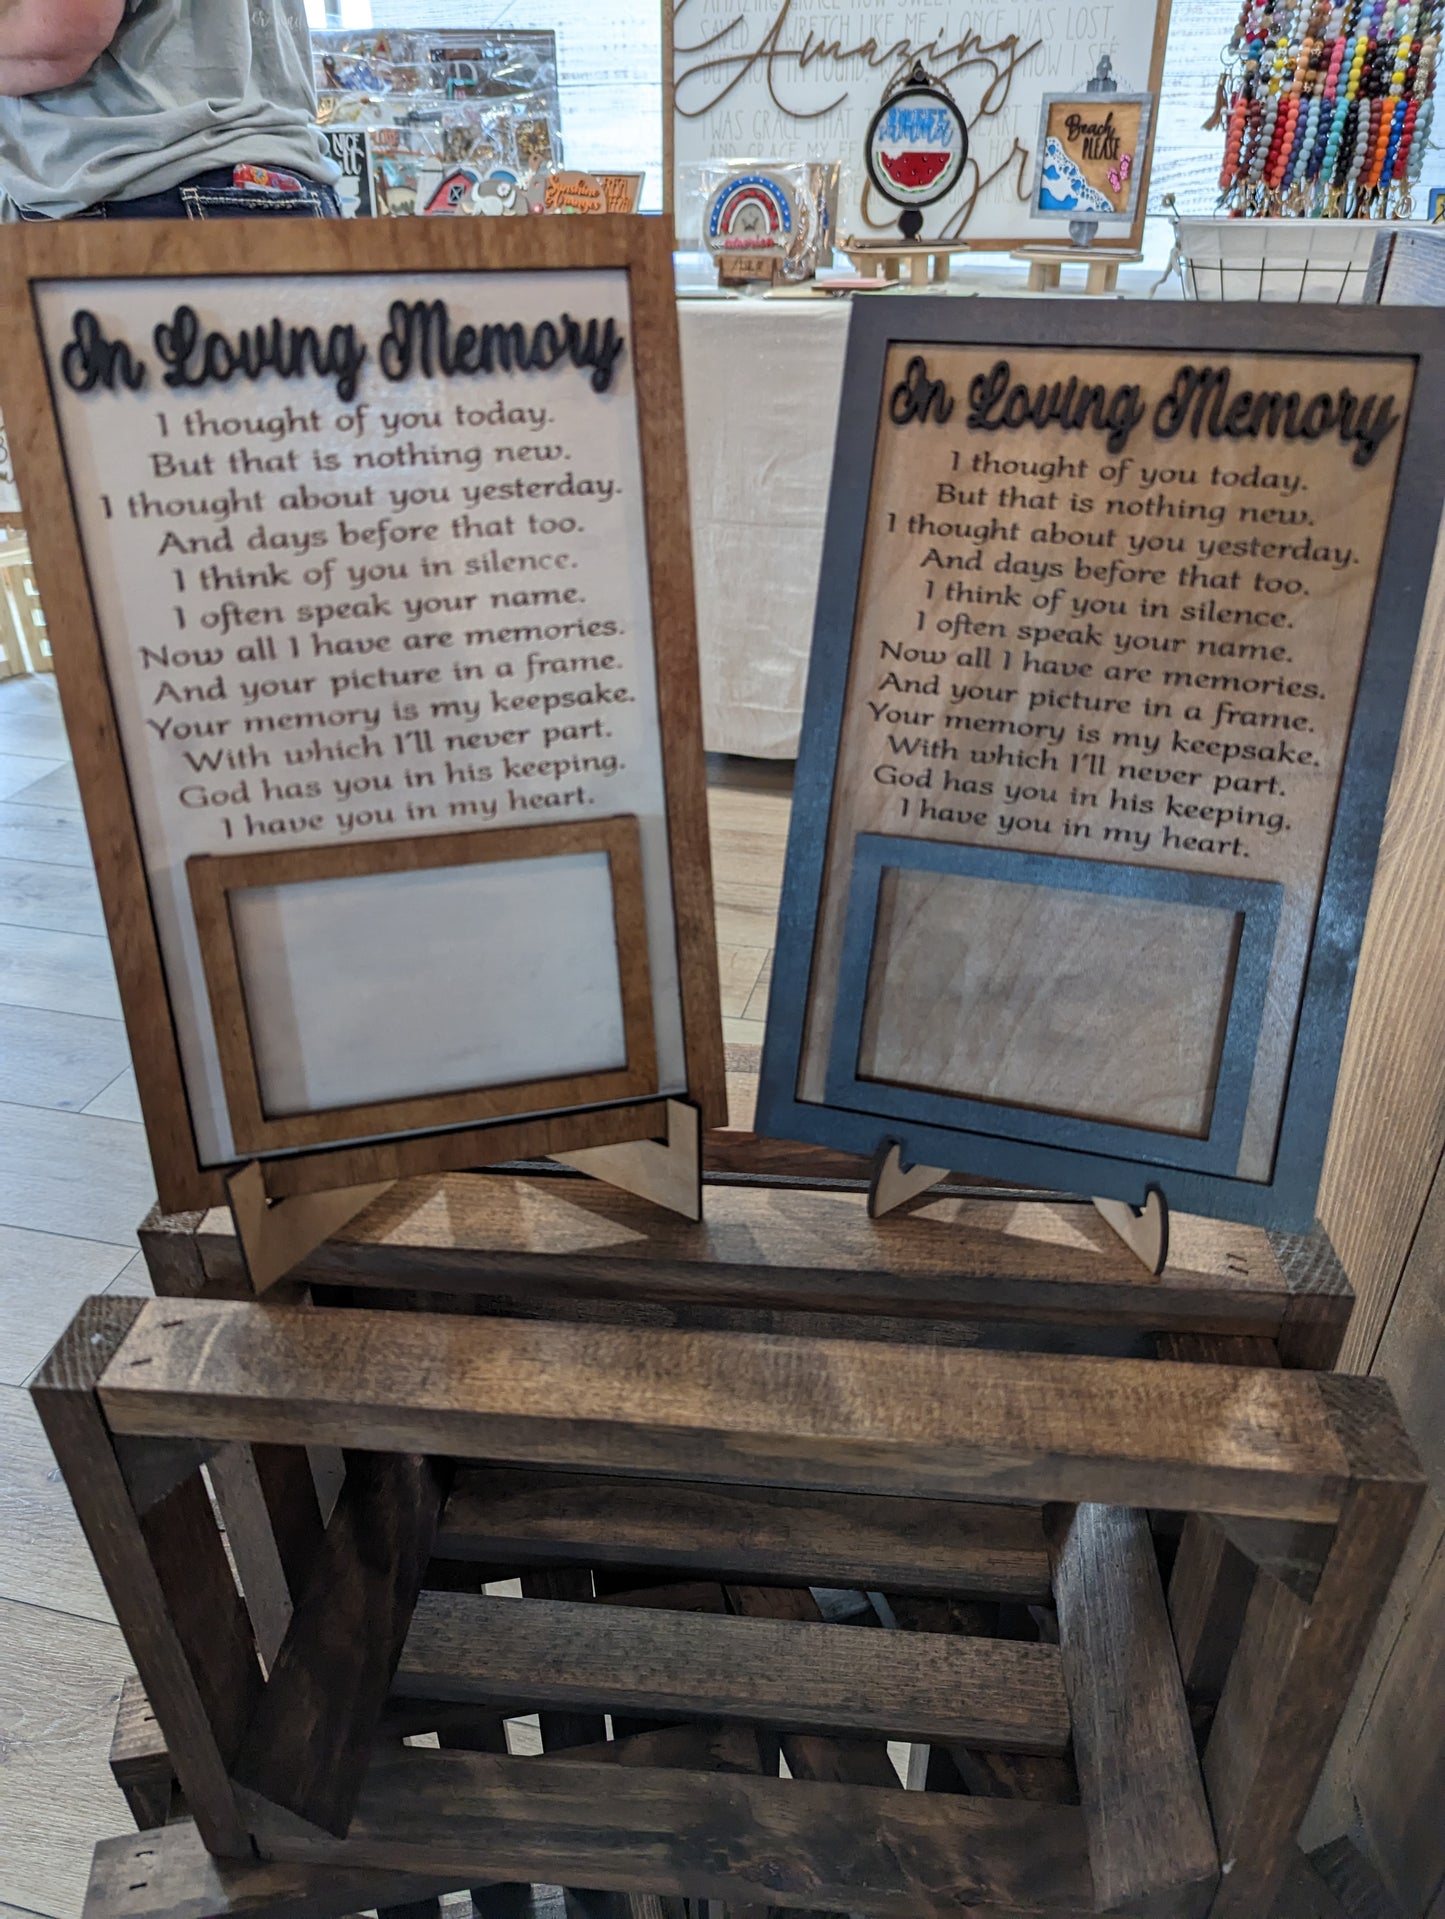 In Loving Memory
I thought of you today.
But that is nothing new.
I thought about you yesterday.
And days before that too.
I think of you in silence.
I often speak your name.
Now all I have are memories.
And your picture in a frame.
Your memory is my keepsake.
With which I'll never part.
God has you in his keeping.
I have you in my heart.
In Loving Memory
I thought of you today.
But that is nothing new.
I thought about you yesterday.
And days before that too.
I think of you in silence.
I often speak your name.
Now all I have are memories.
And your picture in a frame.
Your memory is my keepsake.
With which I'll never part.
God has you in his keeping.
I have you in my heart.
Amazing
WRETCH LIKE ME. I ONCE WAS LOST,
WAS GRACE THAT
HEART
AND GRACE MY
Beach
PLEASE
america
Sunshine
NICE